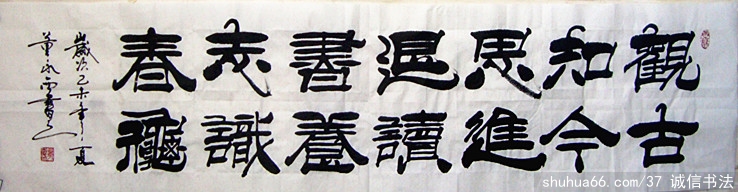 觀古
知今
思進
退讀
書養
志識
春龝
歲次乙未年夏
董永書
shuhua66.com/37 诚信书法